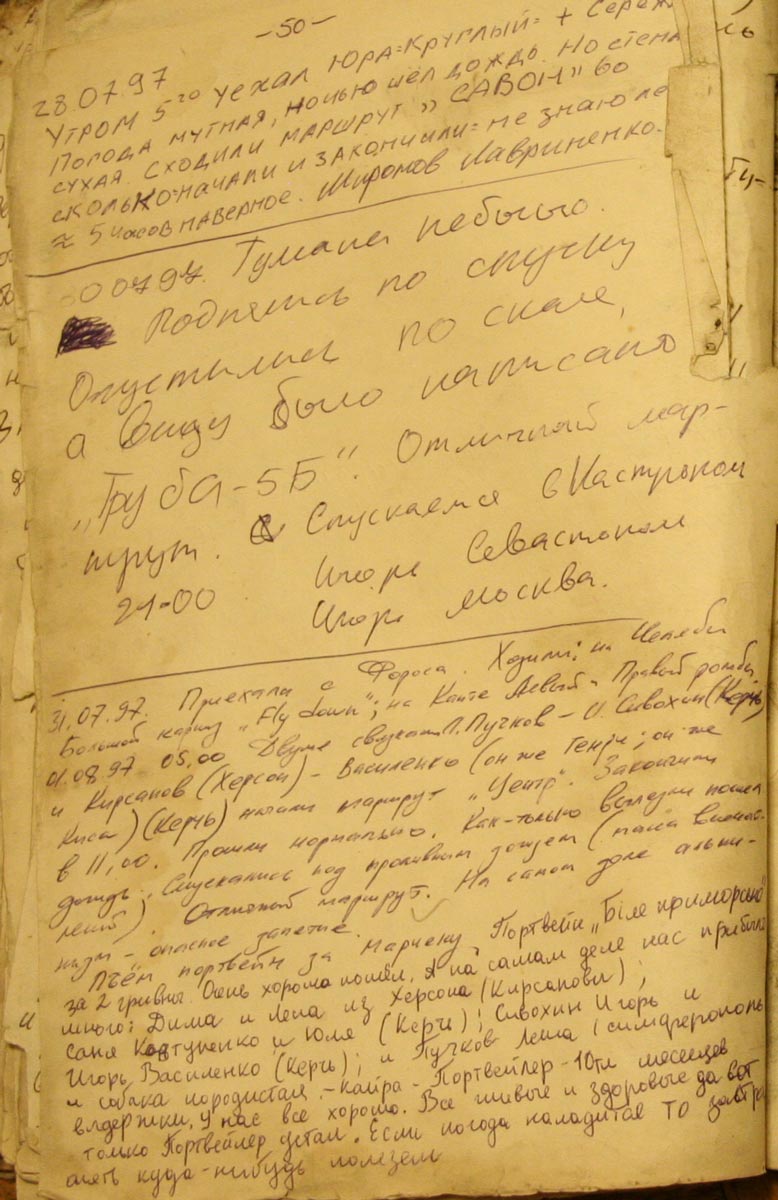 -50-
28.07.97
Утром 5го уехал Юра=Круглый= + Сереж
Погода мутная, ночью шёл дождь. Но стена
сухая. Сходили маршрут „САВОН" 6б
сколько=начали и закончили= не знаю ле
≈ 5 часов наверное. Миронов Лавриненко.
00797. Тумана не было.
Поднялись по спуску
Опустились по скале,
а внизу было написано
„Труба-5Б". Отличный мар-
шрут. Спускаемся в Кастрополь
21-00 Игорь Севастополь
Игорь Москва.
31.07.97. Приехали с Фороса. Ходили: на Челеби
Большой карниз „Fly down"; на Канте Левый и Правый ромбы
01.08.97 05.00 Двумя связками Л. Пучков - И. Сивохин (Керчь)
и Кирсанов (Херсон) - Василенко (он же Генри; он же
Киса) (Керчь) начали маршрут „Центр". Закончили
в 11,00. Прошли нормально. Как-только вылезли пошёл
дождь. Спускались под проливным дождем (
). Отличный маршрут. На самом деле альпи-
низм - опасное занятие.
Пьём портвейн за Марчеку. Портвейн „Біле приморське"
за 2 гривны. Очень хорошо пошёл. А на самом деле нас прибыло
много: Дима и Лена из Херсона (Кирсановы);
Саня Ковтуненко и Юля (Керчь); Сивохин Игорь и
Игорь Василенко (Керчь); и Пучков Леша (Симферополь
и собака породистая - - Портвейлер - 10ти месяцев
выдержки. У нас все хорошо. Все живые и здоровые да вот
только Портвейлер устал. Если погода наладится то завтра
опять куда-нибудь полезем